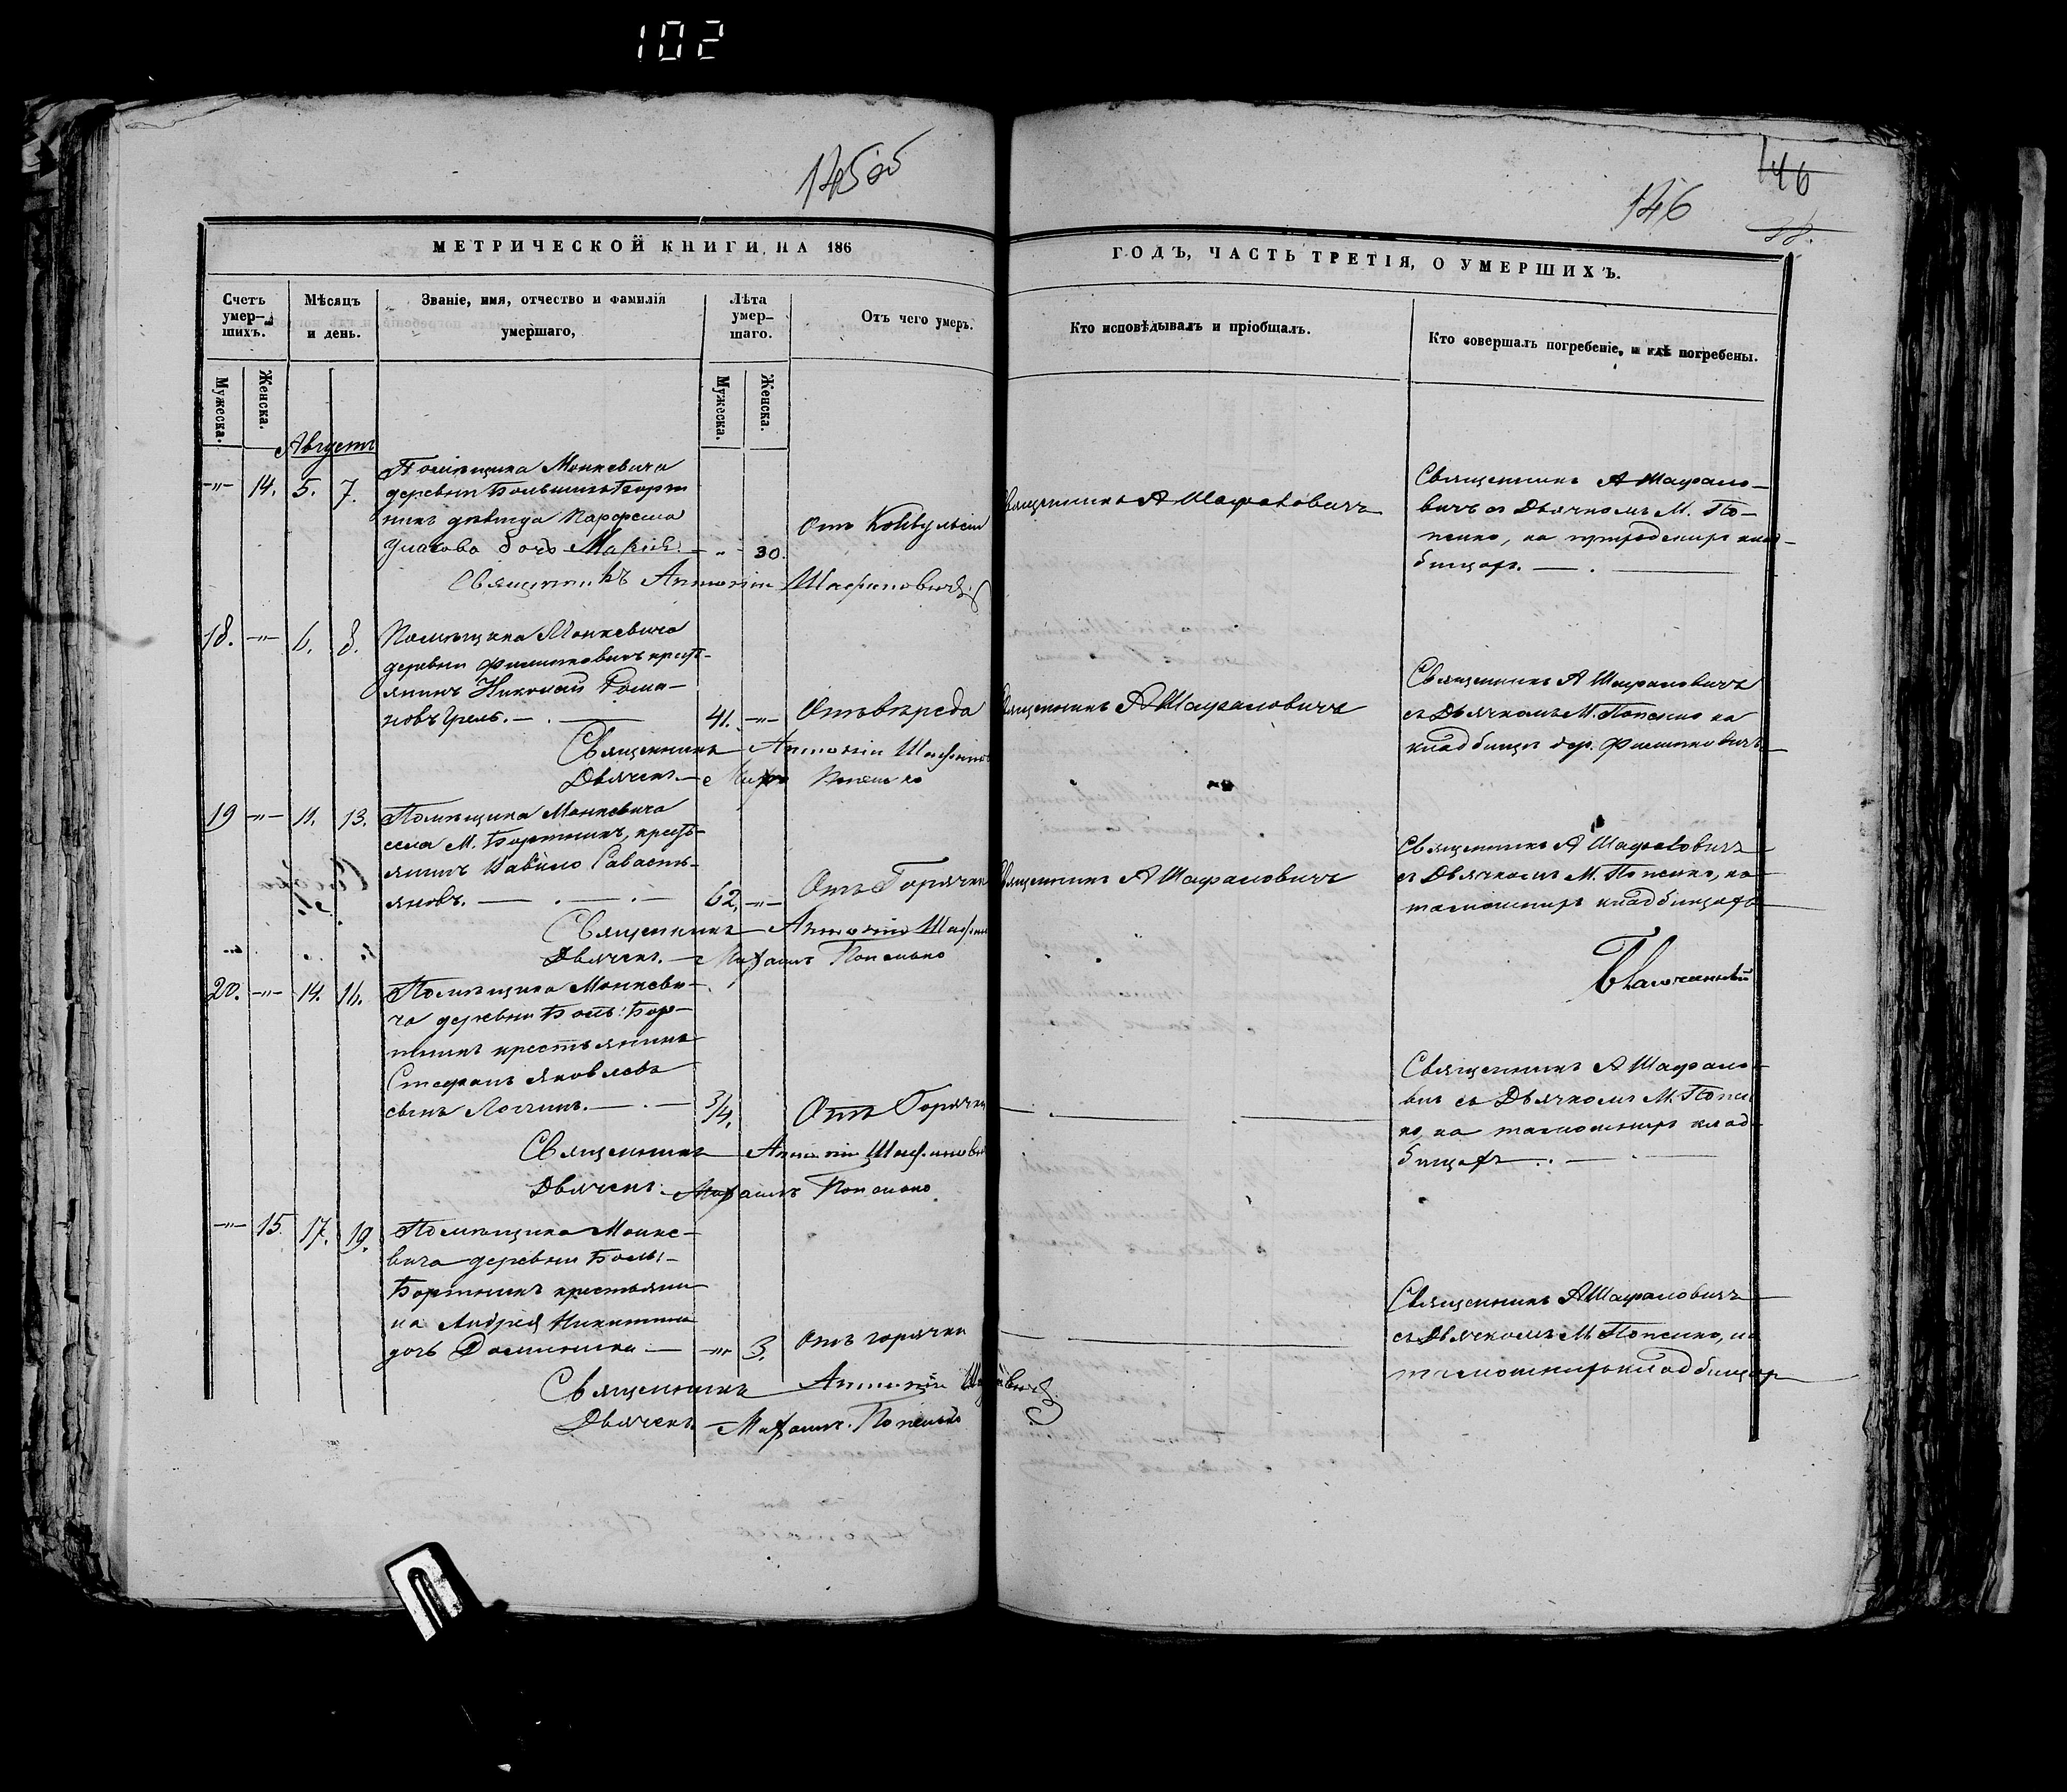 102
145об
146
146
МЕТРИЧЕСКОЙ КНИГИ НА 186
ГОДЪ, ЧАСТЬ ТРЕТІЯ, О УМЕРШИХЪ.
Счетъ умер-шихъ.
Мѣсяцъ и день.
Званіе, имя, отчество и фамилія умершаго,
Лѣта умер-шаго.
Отъ чего умеръ.
Кто исповѣдывалъ и пріобщалъ.
Кто совершалъ погребеніе, и гдѣ погребены.
Мужеска.
Женска.
Мужеска.
Женска.
Августъ
-"- 14. 5. 7.
Помѣщика Монкевича
деревни Большихъ Борт
никъ дѣвица Парфена
дочь Марія. - " 30.
Отъ Конвульсіи
Священникъ А Шафаловичъ
Священникъ А Шафало-
вичъ съ Дьячкомъ М. По-
пейко, на приходскихъ клад-
бищах.
Священникъ Антоній
18. -"- 6. 8.
Помѣщика Монкевича
деревни крест-
янинъ Николай Рома-
новъ 41. -"-
Отъ вереда
Священникъ А Шафаловичъ
Священникъ А Шафаловичъ
съ Дьячкомъ М. Попейко на
кладбищѣ дер.
Священникъ Антоній
Дьячекъ
19 -"- 11. 13.
Помѣщика Монкевича
села М. Бортникъ, крест-
янинъ Вавило Савасть-
яновъ. 62. -"-
Отъ Горячки
Священникъ А Шафаловичъ
Священникъ А Шафаловичъ
съ Дьячкомъ М. Попейко, на
тамошнихъ кладбищахъ
Священникъ Антоній
Дьячекъ. Михаилъ Попейко
20. -"- 14. 16.
Помѣщика Монкеви-
ча деревни Боль: Бор-
тникъ крестьянина
Стефана Яковлева
сынъ Логгинъ. 3/4.
Отъ Горячки
Священникъ А Шафало-
вич съ Дьячкомъ М. Попей
ко, на тамошнихъ клад-
бищахъ
Священникъ Антоній
Дьячекъ Михаилъ Попейко
-"- 15. 17. 19.
Помѣщика Монке-
вича деревни Боль:
Бортникъ крестьяни
на Андрея Никитина
дочь Доминика -"- 3.
Отъ горячки
Священникъ А Шафаловичъ
съ Дьячкомъ М Попейко, на
тамошнихъ кладбищах
Священникъ Антоній
Дьячекъ Михаилъ Попейко